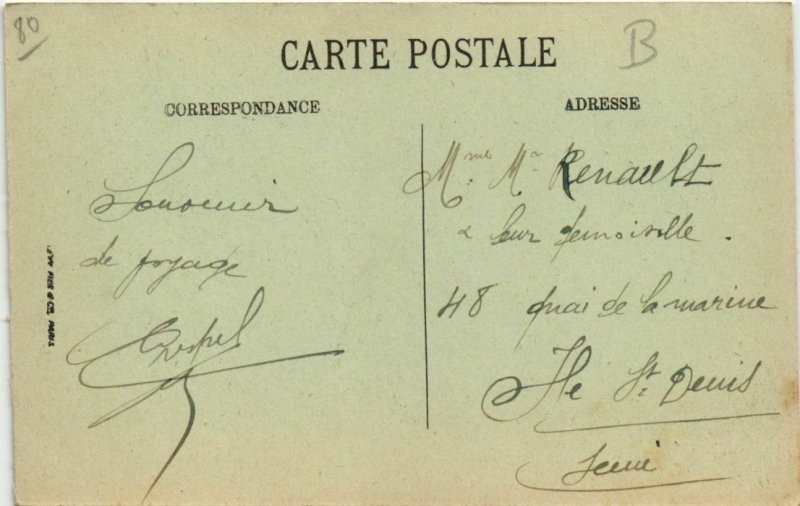 80
B
CARTE POSTALE
CORRESPONDANCE
ADRESSE
Souvenir
de voyage
Mme Mr Renault
& leur demoiselle.
48 quai de la marine
Ile St Denis
Seine